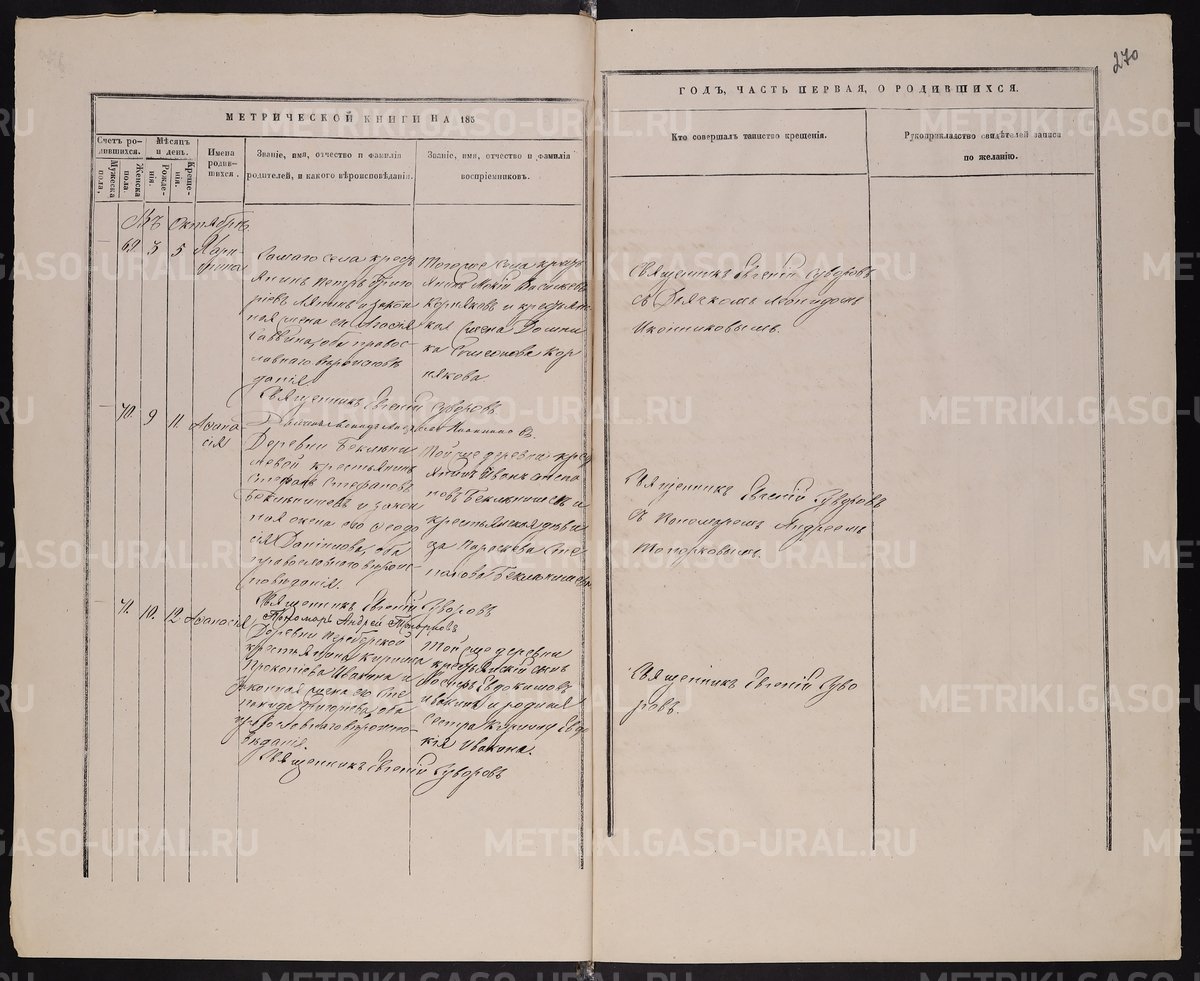 270
МЕТРИЧЕСКОЙ КНИГИ НА 185
ГОДЪ, ЧАСТЬ ПЕРВАЯ, О РОДИВШИХСЯ.
Счетъ ро-
дившихся.
Мужеска
пола.
Женска
пола.
Мѣсяцъ
и день.
Рожде-
нія.
Креще-
нія.
Имена
родив-
шихся.
Званіе, имя, отчество и фамилія
родителей, и какого вѣроисповѣданія.
Званіе, имя, отчество и фамилія
воспріемниковъ.
Кто совершалъ таинство крещенія.
Рукоприкладство свидѣтелей записи
по желанію.
Октябрь
69 3 5
Самаго села крест
янинъ Петръ Григо
рьевъ и закон
ная жена его
Саввина, оба правос
лавнаго вѣроисповѣ
данія.
Тогоже села крест
янинъ Васильевъ
Корняковъ и крестьянс
кая жена Домни
ка Симеонова Кор
някова
Священникъ Евгеній Суворовъ
съ Дьячкомъ Леонидомъ
Иконниковымъ.
Священникъ Евгеній Суворовъ
70. 9 11 Афана
сія
Деревни Беклени
щевой крестьянинъ
Стефанъ Стефановъ
Бекленищевъ и закон
ная жена его Феодо
сія Даніилова, оба
православнаго вѣроис
повѣданія.
Тойже деревни крест
янинъ Иванъ Степа
новъ Бекленищевъ и
крестьянская дѣви
ца Параскева Сте
панова Бекленищева
Священникъ Евгеній Суворовъ
съ Пономаремъ Андреемъ
Топорковымъ.
Священникъ Евгеній Суворовъ
Пономарь Андрей Топорковъ
71. 10. 12 Афанасія
Деревни
крестьянина Кирила
Прокопіева Ивакина и
законная жена его Сте
панида оба
православнаго вѣроиспо
вѣданія.
Тойже деревни
крестьянскій сынъ
Іосифъ Евдокимовъ
Ивакинъ и родная
сестра Кирилу Евдо
кія Ивакина.
Священникъ Евгеній Суво
ровъ.
Священникъ Евгеній Суворовъ
METRIKI.GASO-URAL.RU